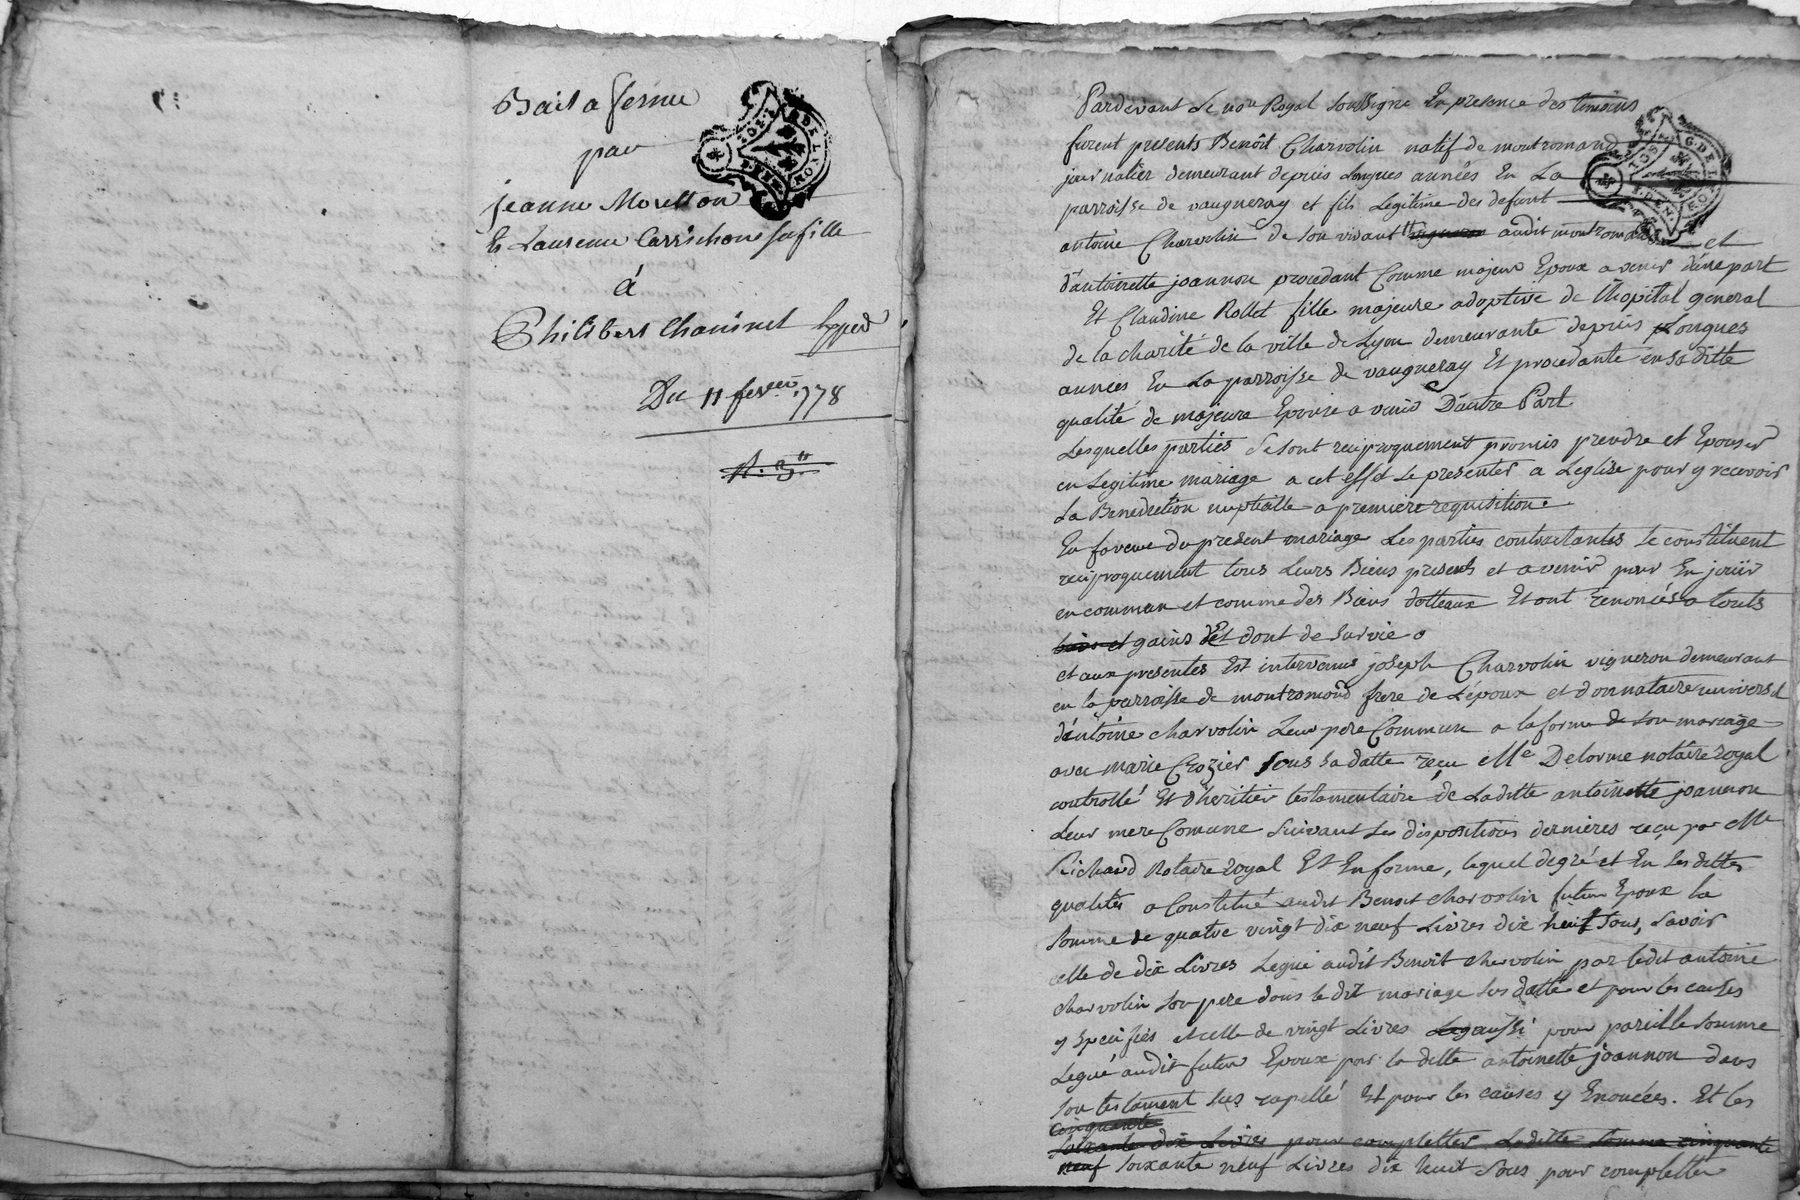 Bail a ferme
par
jeanne Moretton
Et Laurence Carrichon sa fille
á
Philibert Chaninel
Du 11 fevrer 1778
G. DE LYON
Pardevant Le nore Royal Soussigné En presence des temoins
furent presents Benoît Charvolin natif de montromand
journalier demeurant depuis Longues années En La
parroisse de vaugneray et fils Legitime des defunt
antoine Charvolin de son vivant vigneron audit montromand et
d'antoinette joannon procedant Comme majeur Epoux a venir d'une part
Et Claudine Rollet fille majeure adoptive de l'hopital general
de la charité de la ville de Lyon demeurante depuis Longues
années En La parroisse de vaugneray Et procedante en sa ditte
qualité de majeure Epouse a venir D'autre Part
Lesquelles parties se sont reciproquement promis prendre et Epouser
en Legitime mariage a cet effet se presenter a Leglise pour y recevoir
La Benediction nuptialle a premiere requisition.
En faveur du present mariage Les parties contractantes se constituent
reciproquement tous Leurs Biens presents et avenir pour En joüir
en commun et comme des Biens dotteaux Et ont renoncés a touts
gains Et dont de survie
et aux presentes Est intervenus joseph Charvolin vigneron demeurant
en la parroisse de montromand frere de L'époux et donnataire universel
d'antoine charvolin Leur pere Commun a la forme de son mariage
avec marie Crozier sous sa datte reçu Me Delorme notaire royal
controllé Et d'heritier testamentaire de Laditte antoinette joannon
Leur mere Comune suivant ses dispositions dernières reçu par Me
Richard Notaire royal Et En forme, lequel de gré et En ses dittes
qualités a Constitué audit Benoit charvolin futur Epoux la
somme de quatre vingt dix neuf Livres dix huit sous, savoir
celle de dix Livres Legué audit Benoit charvolin par ledit antoine
charvolin son pere dans le dit mariage sus datté et pour les causes
y specifiés et celle de vingt Livres aussi pour pareille somme
Legué audit futur Epoux par la ditte antoinette joannon dans
son testament sus rapellé Et pour les causes y Enoncées. Et les
cinquante
soixante dix Livres pour completter Laditte somme cinquante
neuf soixante neuf Livres dix huit sous pour completter